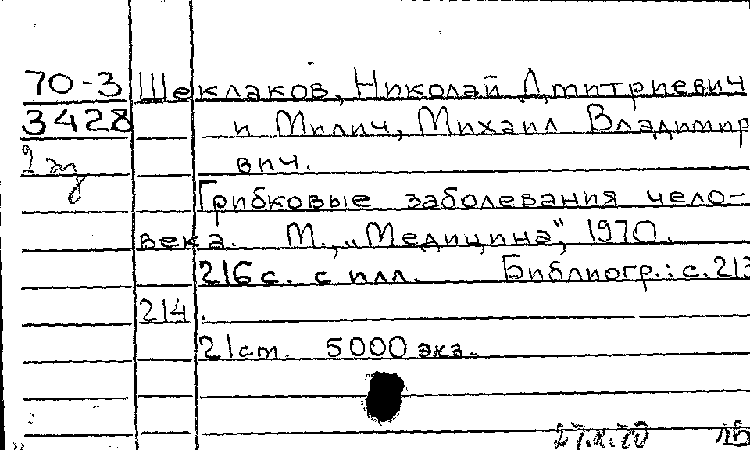 70-3 Шеклаков, Николай Дмитриевич
3428 и Милич, Михаил Владимир
2 экз вич.
Грибковые заболевания чело-
века. М., „Медицина", 1970.
216 с. с илл. Библиогр.: с. 213
214.
21 см. 5000 экз.